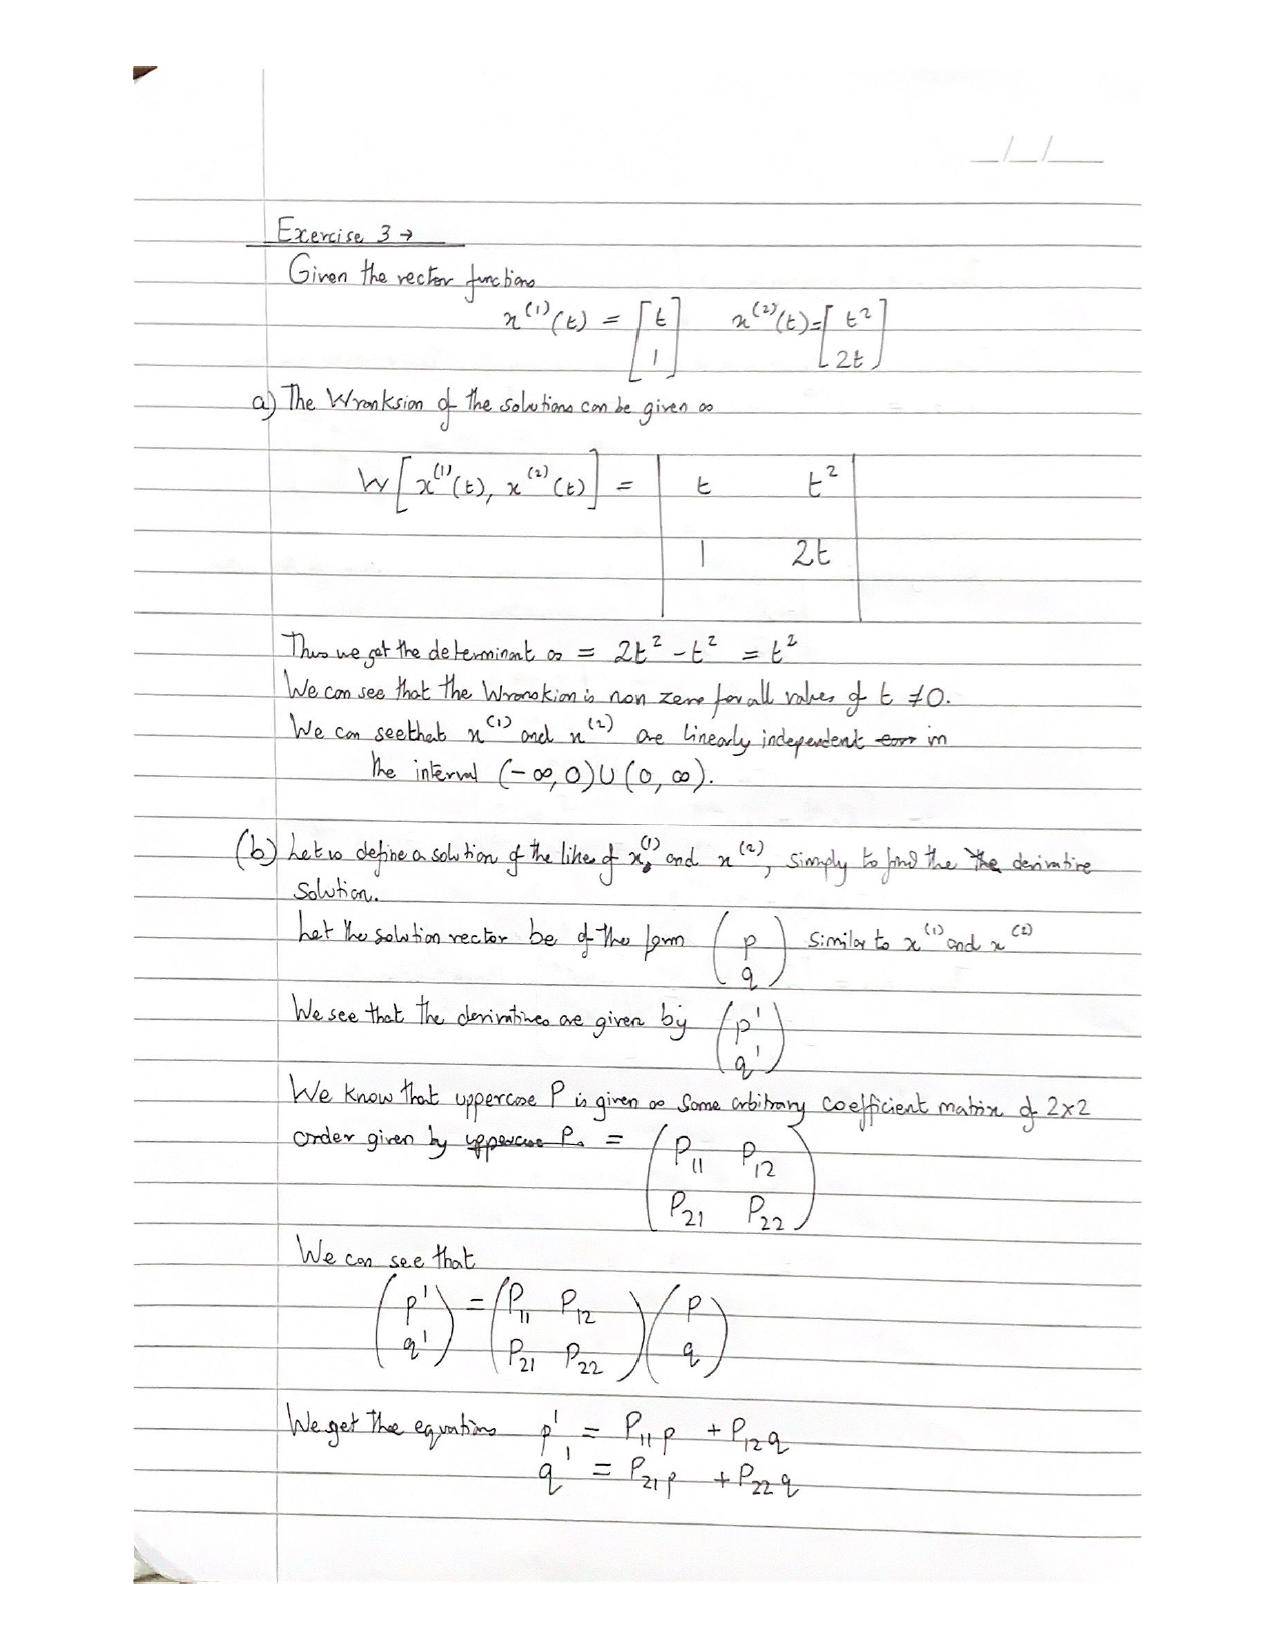 __/__/____
Exercise 3 →
Given the vector functions
x^(1)(t) = [t 1] x^(2)(t) = [t^2 2t]
a) The Wronksian of the solutions can be given as
W[x^(1)(t), x^(2)(t)] = | t t^2 |
| 1 2t |
Thus we get the determinant as = 2t^2 - t^2 = t^2
We can see that the Wronskian is non zero for all values of t ≠ 0.
We can see that x^(1) and x^(2) are linearly independent in
the interval (-∞, 0) ∪ (0, ∞).
(b) Let us define a solution of the likes of x^(1) and x^(2), simply to find the the derivative
solution.
Let the solution vector be of the form (p q) similar to x^(1) and x^(2)
We see that the derivatives are given by (p' q')
We know that uppercase P is given as some arbitrary coefficient matrix of 2x2
order given by uppercase P. = (P11 P12
P21 P22)
We can see that
(p' q') = (P11 P12 P21 P22)(p q)
We get the equations p' = P11 p + P12 q
q' = P21 p + P22 q